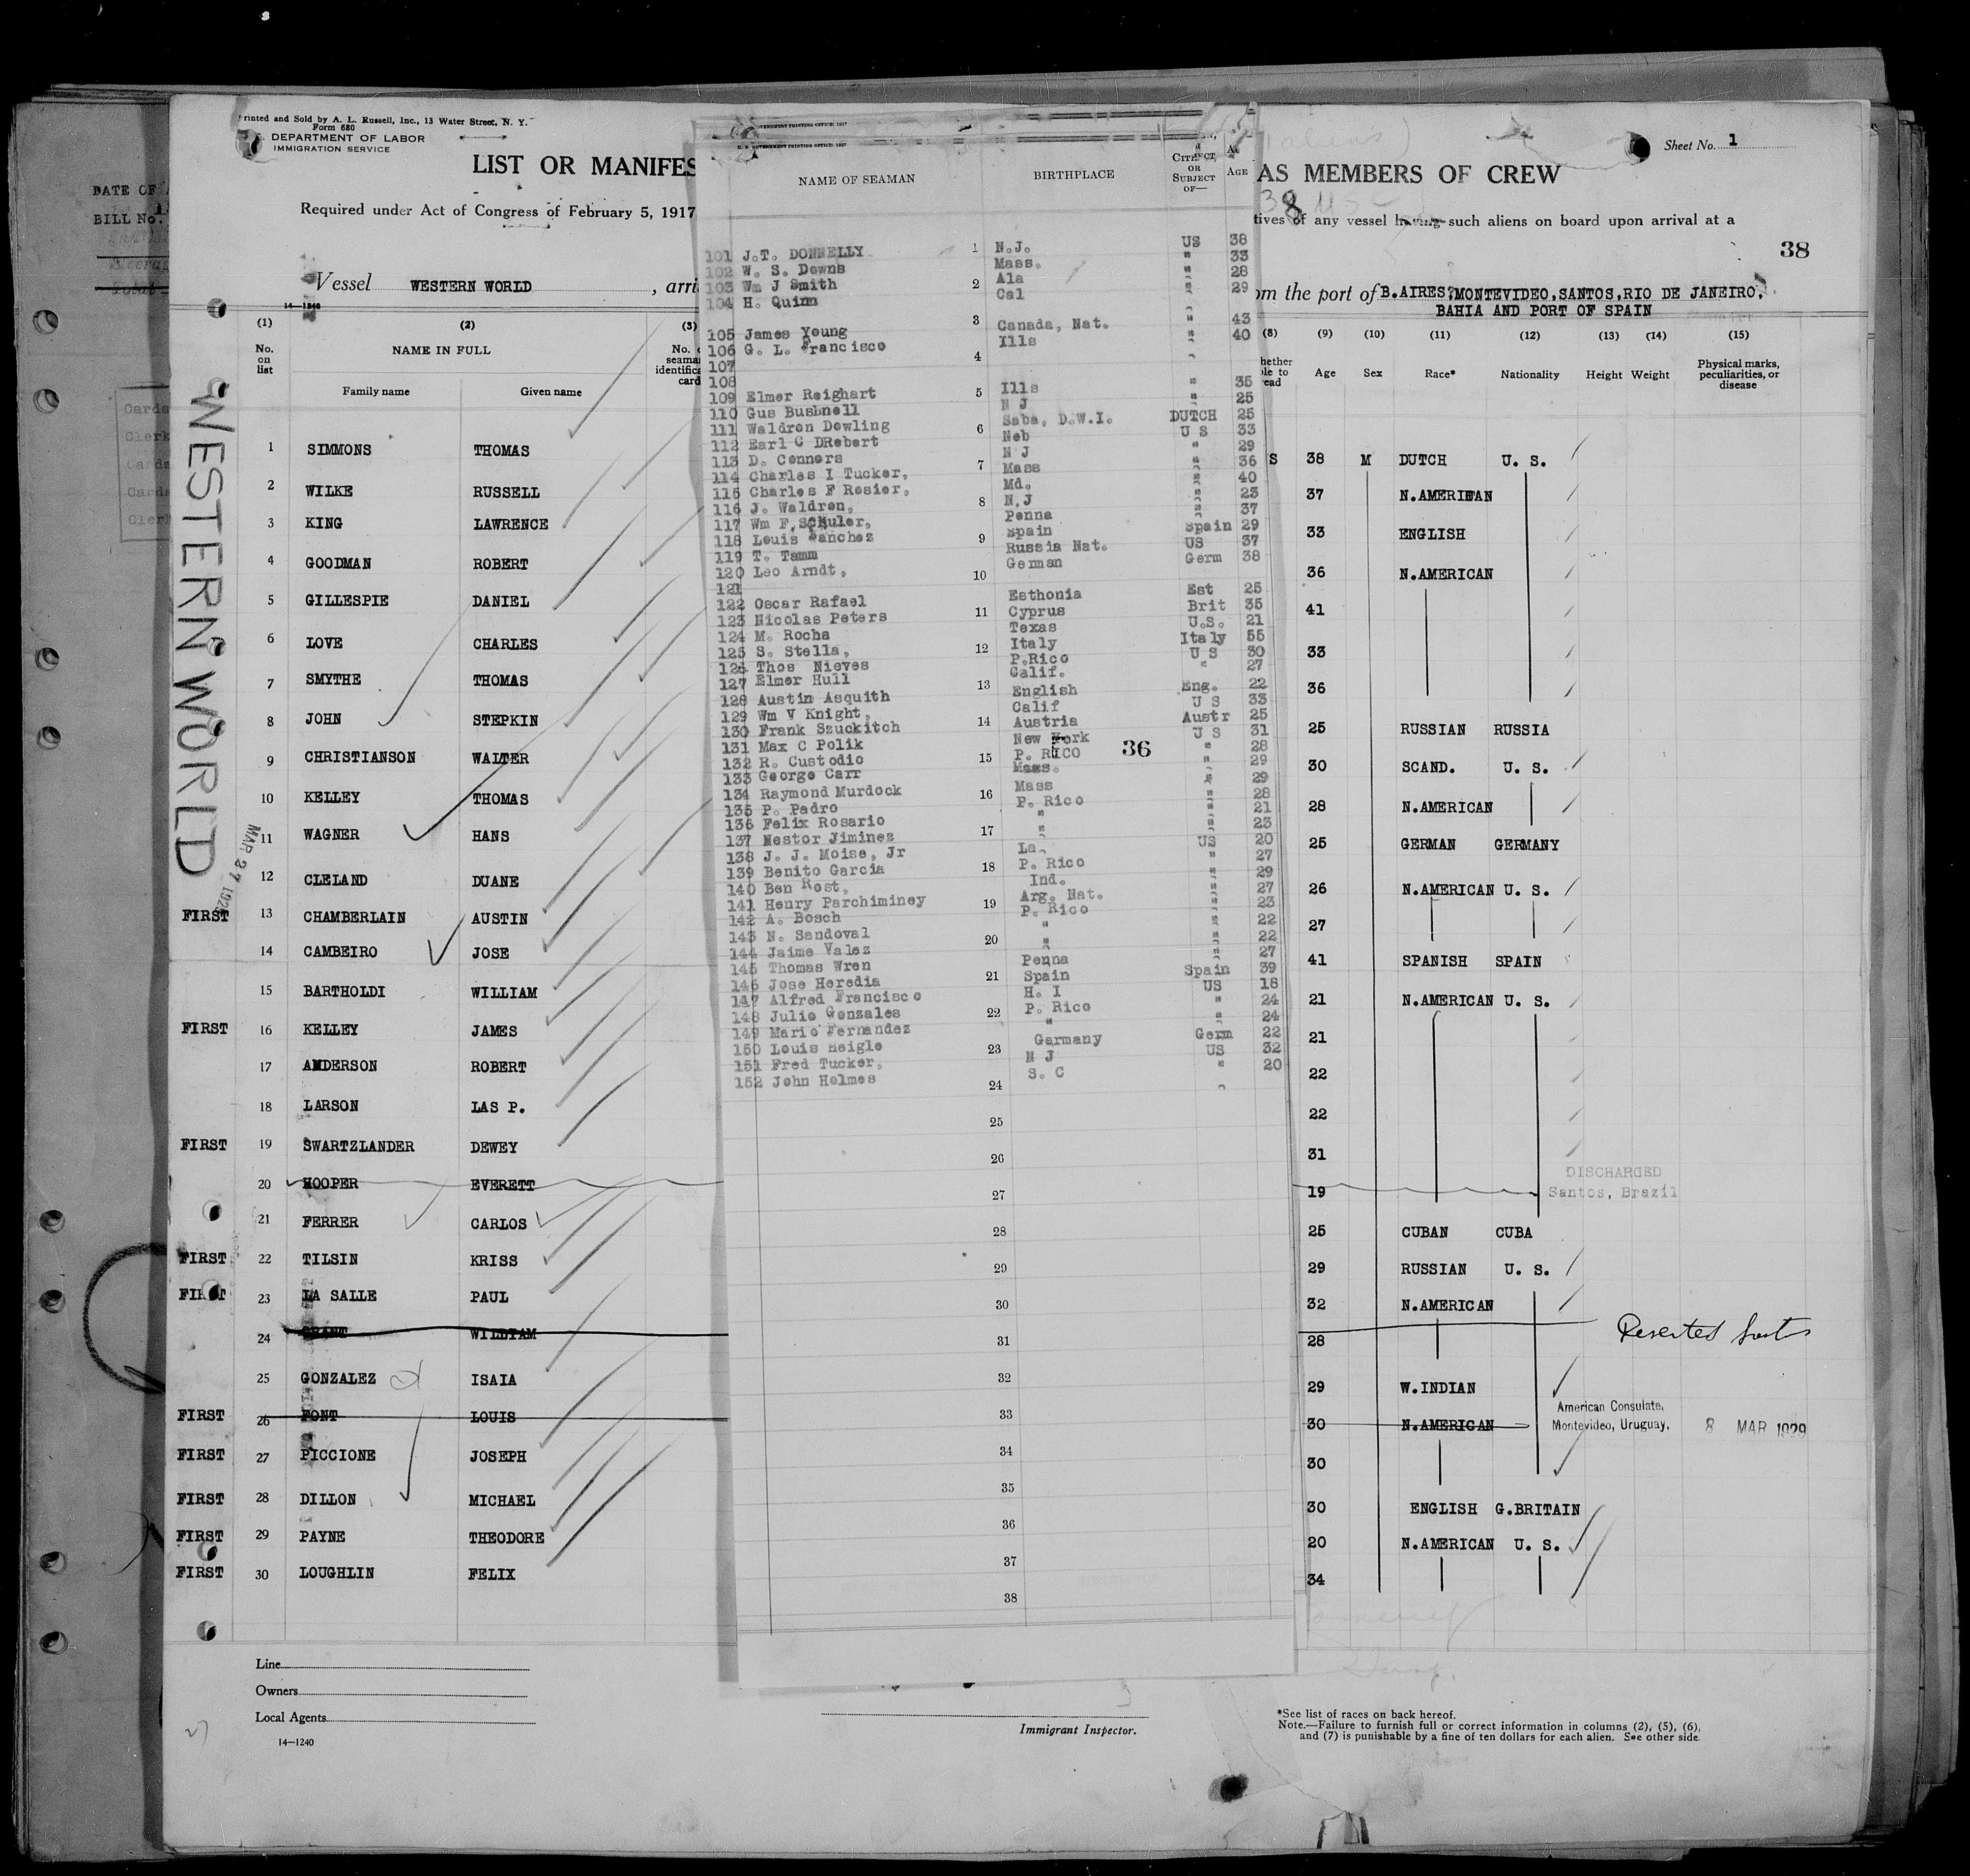 Printed and Sold by A. L. Russell, Inc., 13 Water Street, N. Y.
Form 680
DEPARTMENT OF LABOR
IMMIGRATION SERVICE
LIST OR MANIFES
Required under Act of Congress of February 5, 1917
Vessel WESTERN WORLD , arri
14—1240
(1) (2) (3)
No. on list NAME IN FULL
Family name Given name
1 SIMMONS THOMAS
2 WILKE RUSSELL
3 KING LAWRENCE
4 GOODMAN ROBERT
5 GILLESPIE DANIEL
6 LOVE CHARLES
7 SMYTHE THOMAS
8 JOHN STEPKIN
9 CHRISTIANSON WALTER
10 KELLEY THOMAS
11 WAGNER HANS
12 CLELAND DUANE
FIRST 13 CHAMBERLAIN AUSTIN
14 CAMBEIRO JOSE
15 BARTHOLDI WILLIAM
FIRST 16 KELLEY JAMES
17 ANDERSON ROBERT
18 LARSON LAS P.
FIRST 19 SWARTZLANDER DEWEY
20 HOOPER EVERETT
21 FERRER CARLOS
FIRST 22 TILSIN KRISS
FIRST 23 LA SALLE PAUL
24 GRANT WILLIAM
25 GONZALEZ ISAIA
FIRST 26 FONT LOUIS
FIRST 27 PICCIONE JOSEPH
FIRST 28 DILLON MICHAEL
FIRST 29 PAYNE THEODORE
FIRST 30 LOUGHLIN FELIX
Line
Owners
Local Agents
14—1240
WESTERN WORLD
DATE OF
BILL No.
NAME OF SEAMAN BIRTHPLACE CITIZEN OR SUBJECT OF— AGE
101 J.T. DONNELLY 1 N.J. US 38
102 W. S. Downs Mass. " 33
103 Wm J Smith 2 Ala " 28
104 H. Quinn Cal " 29
105 James Young 3 Canada, Nat. " 43
106 G. L. Francisco Ills " 40
107 4
108
109 Elmer Reighart 5 Ills " 35
110 Gus Bushnell N J " 25
111 Waldron Dowling Saba, D.W.I. DUTCH 25
112 Earl C DRebert 6 Neb U S 33
113 D. Connors N J " 29
114 Charles I Tucker, 7 Mass " 36
115 Charles F Rosier, Md. " 40
116 J. Waldren, 8 N.J " 23
117 Wm F. SChuler, Penna " 37
118 Louis Sanchez Spain Spain 29
119 T. Tamm 9 Russia Nat. US 37
120 Leo Arndt, 10 German Germ 38
121
122 Oscar Rafael Esthonia Est 25
123 Nicolas Peters 11 Cyprus Brit 35
124 M. Rocha Texas U.S. 21
125 S. Stella, 12 Italy Italy 55
126 Thos Nieves P.Rico U S 30
127 Elmer Hull Calif. " 27
128 Austin Asquith 13 English Eng. 22
129 Wm V Knight, Calif U S 33
130 Frank Szuckitch 14 Austria Austr 25
131 Max C Polik New York U S 31
132 R. Custodio 15 P. RICO " 28
133 George Carr Mass. " 29
134 Raymond Murdock 16 Mass " 29
135 P. Padro P. Rico " 28
136 Felix Rosario " " 21
137 Nestor Jiminez 17 " " 23
138 J. J. Moise, Jr La. US 20
139 Benito Garcia 18 P. Rico " 27
140 Ben Rost, Ind. " 29
141 Henry Parchiminey 19 Arg. Nat. " 27
142 A. Bosch P. Rico " 23
143 N. Sandoval " " 22
144 Jaime Valez 20 " " 22
145 Thomas Wren Penna " 27
146 Jose Heredia 21 Spain Spain 39
147 Alfred Francisco H. I US 18
148 Julio Gonzales 22 P. Rico " 24
149 Mario Fernandez " " 24
150 Louis Heigle 23 Germany Germ 22
151 Fred Tucker, N J US 32
152 John Holmes 24 S. C " 20
25
26
27
28
29
30
31
32
33
34
35
36
37
38
36
Immigrant Inspector.
AS MEMBERS OF CREW
Sheet No. 1
tives of any vessel having such aliens on board upon arrival at a
38
om the port of B.AIRES, MONTEVIDEO, SANTOS, RIO DE JANEIRO,
BAHIA AND PORT OF SPAIN
(8) (9) (10) (11) (12) (13) (14) (15)
Age Sex Race* Nationality Height Weight Physical marks, peculiarities, or disease
S 38 M DUTCH U. S.
37 N.AMERICAN
33 ENGLISH
36 N.AMERICAN
41
33
36
25 RUSSIAN RUSSIA
30 SCAND. U. S.
28 N.AMERICAN
25 GERMAN GERMANY
26 N.AMERICAN U. S.
27
41 SPANISH SPAIN
21 N.AMERICAN U. S.
21
22
22
31
19 DISCHARGED Santos, Brazil
25 CUBAN CUBA
29 RUSSIAN U. S.
32 N.AMERICAN
28 Deserted
29 W.INDIAN
30 N.AMERICAN American Consulate, Montevideo, Uruguay, 8 MAR 1929
30
30 ENGLISH G.BRITAIN
20 N.AMERICAN U. S.
34
*See list of races on back hereof.
Note.—Failure to furnish full or correct information in columns (2), (5), (6),
and (7) is punishable by a fine of ten dollars for each alien. See other side.